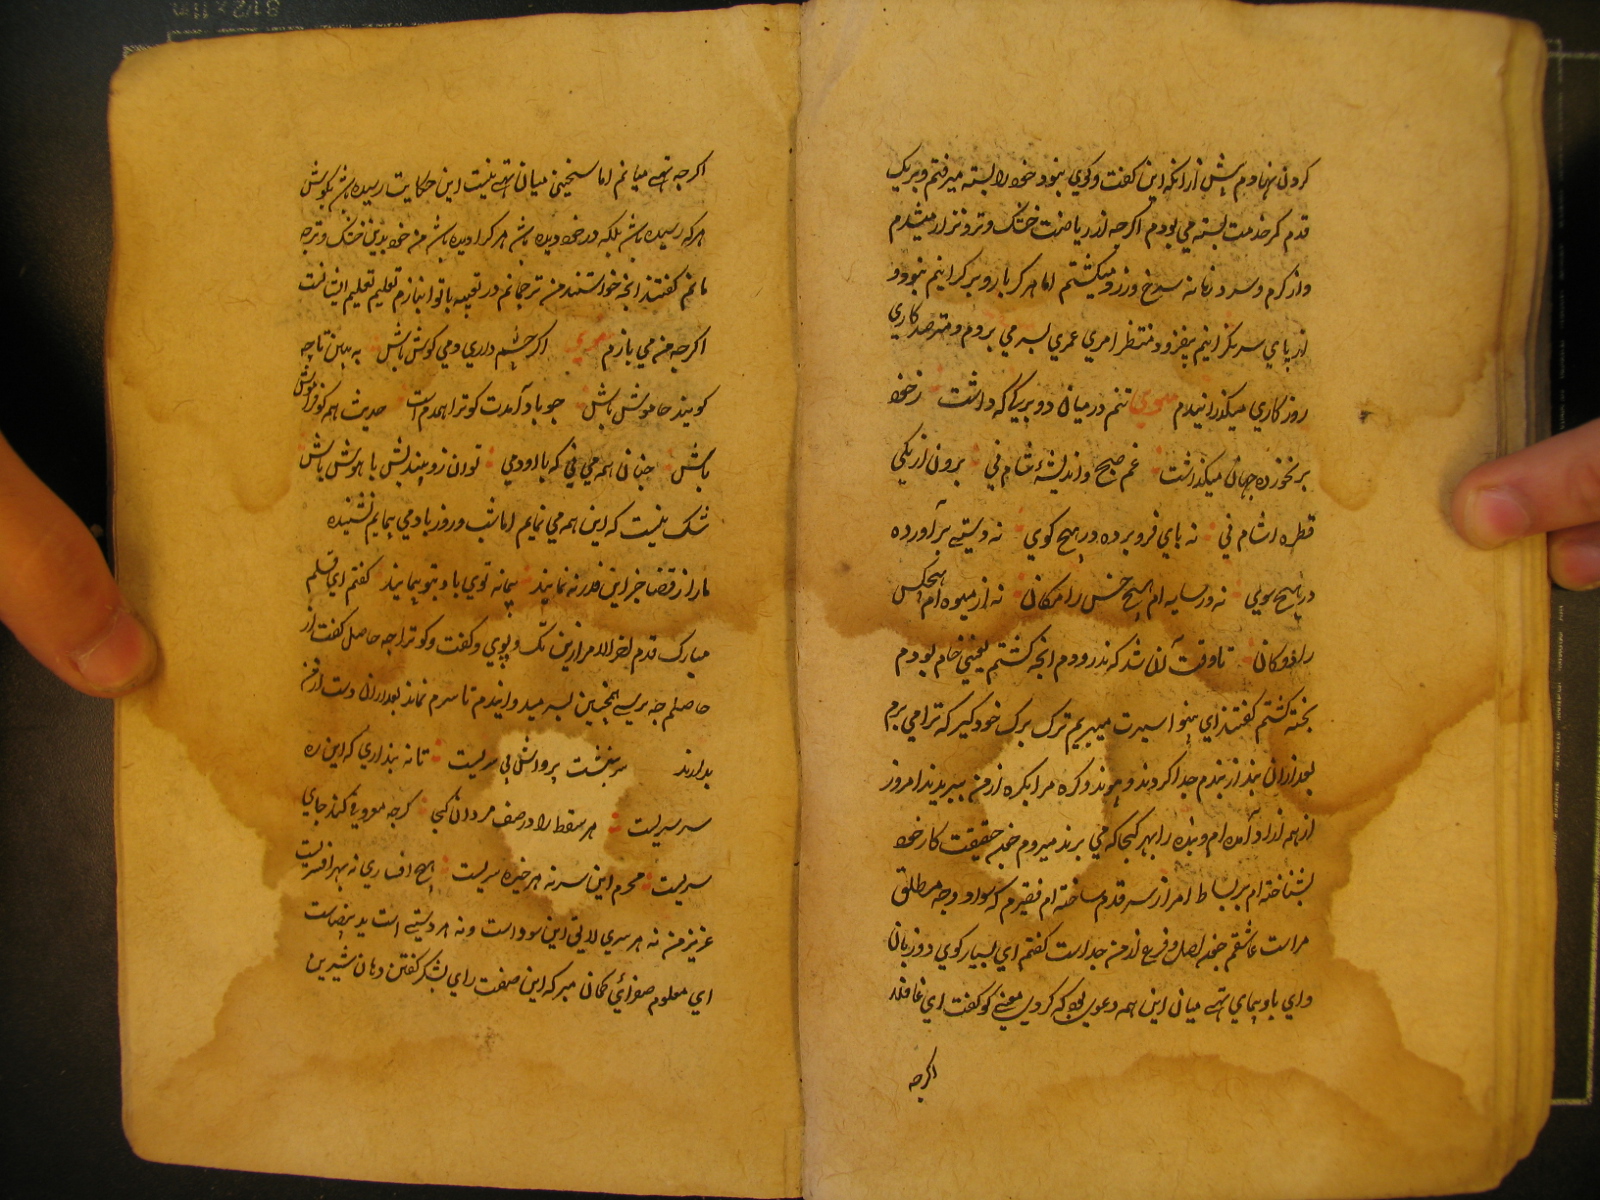 کردن نهادم پیش ازانکه این کفت وکوی نبود خود را بسته میرفتم و بریک
قدم کمر خدمت بسته می بودم اکرچه از ریاضت خشک وتر ونزار میشدم
واز کرم وسرد زمانه سرخ وزرد میکشتم اما هر کز بار وبر کرانیم نبود و
از پای سر بکرانیم نیفزود منتظر امری عمری بسر می بردم ومترصد کاری
روز کاری میکذرانیدم مثنوی تنم در میان دو بر یکی که داشت ز خود
بر نخورده جهان میکذاشت غم صبح واندیشهٔ شام نی برون از یکی
قطره اشام نی نه پای فرو برده در هیچ کوی نه دستی بر آورده
در هیچ سوی نه در سایه ام هیچ خس را مکان نه از میوه ام هیچکس
را تاوقت آن شد که بدرودم انچه کشتم یعنی خام بودم
پخته کشتم کفتند ای بینوا اسیرت میبریم ترک برک خود کیر که ترا می بریم
بعد ازان بند از بندم جدا کردند و پیوند وکره مرا یکره از من ببریدند امروز
از همه ازاد آمده ام وبنده را بهر کجا که می برند میروم حقیقت کار خود
بشناخته ام بر بساط امر از سر قدم ساخته ام فقیرم که سواد وجه مطلق
مراست عاشقم اصل وفرع از من جداست کفتم ای بسیار کوی دو زبان
وای باد پیمای تهی میان این همه دعوی بود که کردی معنی کو کفت ای غافل
اکرچه
اکرچه تهی میانم اما سخنی میان تهی نیست این حکایت رسیده باش بکوش
هر که رسیده باش بلکه در خود دیده باش هر کرا دیده باش من خود بدین خشک وتر چه
مانم کفتند انچه خواستند من ترجمانم در تعبیه با تو انبازم تعلیم تعلیم ایشانست
اکرچه من می بازم اکر چشم داری ومی کوش باش به بین تا چه
کویند خاموش باش چو باد آمدت کو ترا همدم است حدیث همه کو فراموش
باش چنان همدمی نی که با او دمی توان زد پسندیش با هوش باش
شک نیست که این همه می نمایم اما شب وروز باد می پیمایم نشنیده
مارا از قضا جز این قدر ننمایند پیمانه توی باد بتو پیمایند کفتم ای قلم
مبارک قدم اخر الامر ازین تک وپوی وکفت وکو ترا چه حاصل کفت از
حاصلم چه پرسی همچنین بسر میدوانیدم تا سرم نماند بعد ازان دست از من
بدارند سر نبشت پروانش بی سریست تا نه پنداری که این ره
سرسریست هر سقط را در صف مردان کجا کرچه معرو کند جای
سریست محرم این سر نه هر خیره سریست هیچ افساری نه بهر افسریست
عزیز من نه هر سری لایق این سوداست ونه هر دستی است ید بیضاست
ای معلوم صفرائی کمان مبر که این صفت رای بشکر کفتن دهان شیرین